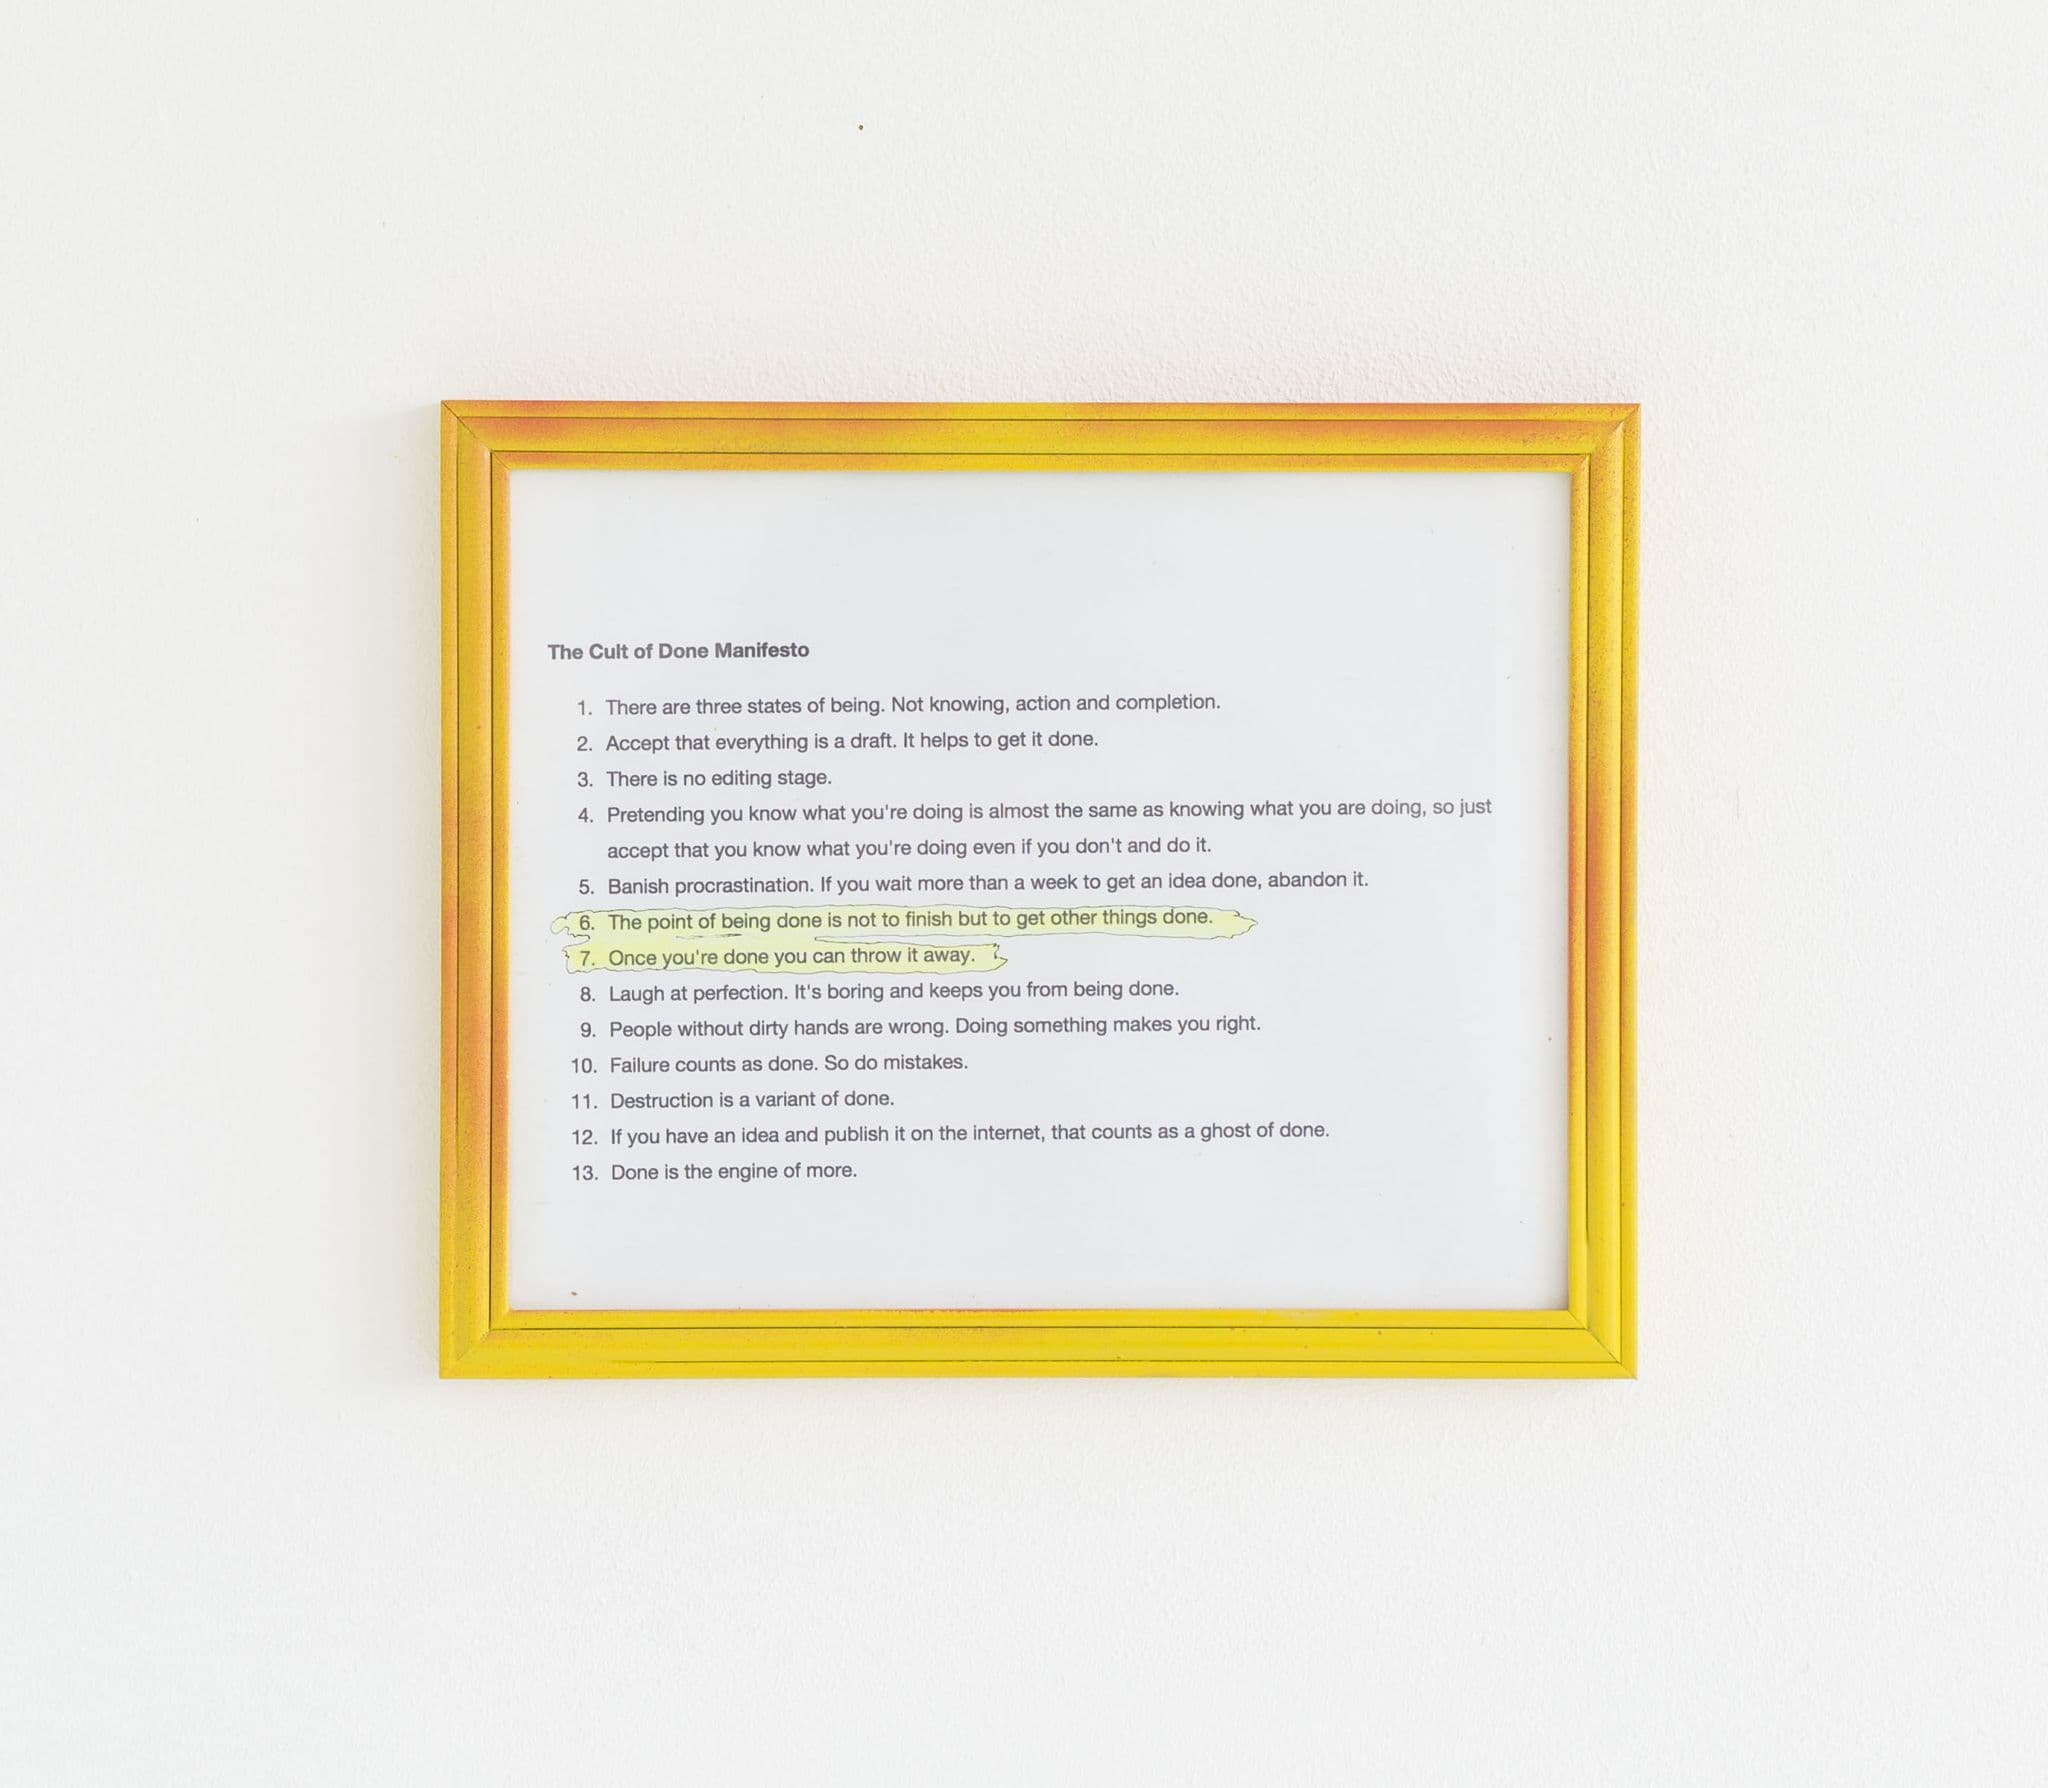 The Cult of Done Manifesto
1. There are three states of being. Not knowing, action and completion.
2. Accept that everything is a draft. It helps to get it done.
3. There is no editing stage.
4. Pretending you know what you're doing is almost the same as knowing what you are doing, so just
accept that you know what you're doing even if you don't and do it.
5. Banish procrastination. If you wait more than a week to get an idea done, abandon it.
6. The point of being done is not to finish but to get other things done.
7. Once you're done you can throw it away.
8. Laugh at perfection. It's boring and keeps you from being done.
9. People without dirty hands are wrong. Doing something makes you right.
10. Failure counts as done. So do mistakes.
11. Destruction is a variant of done.
12. If you have an idea and publish it on the internet, that counts as a ghost of done.
13. Done is the engine of more.